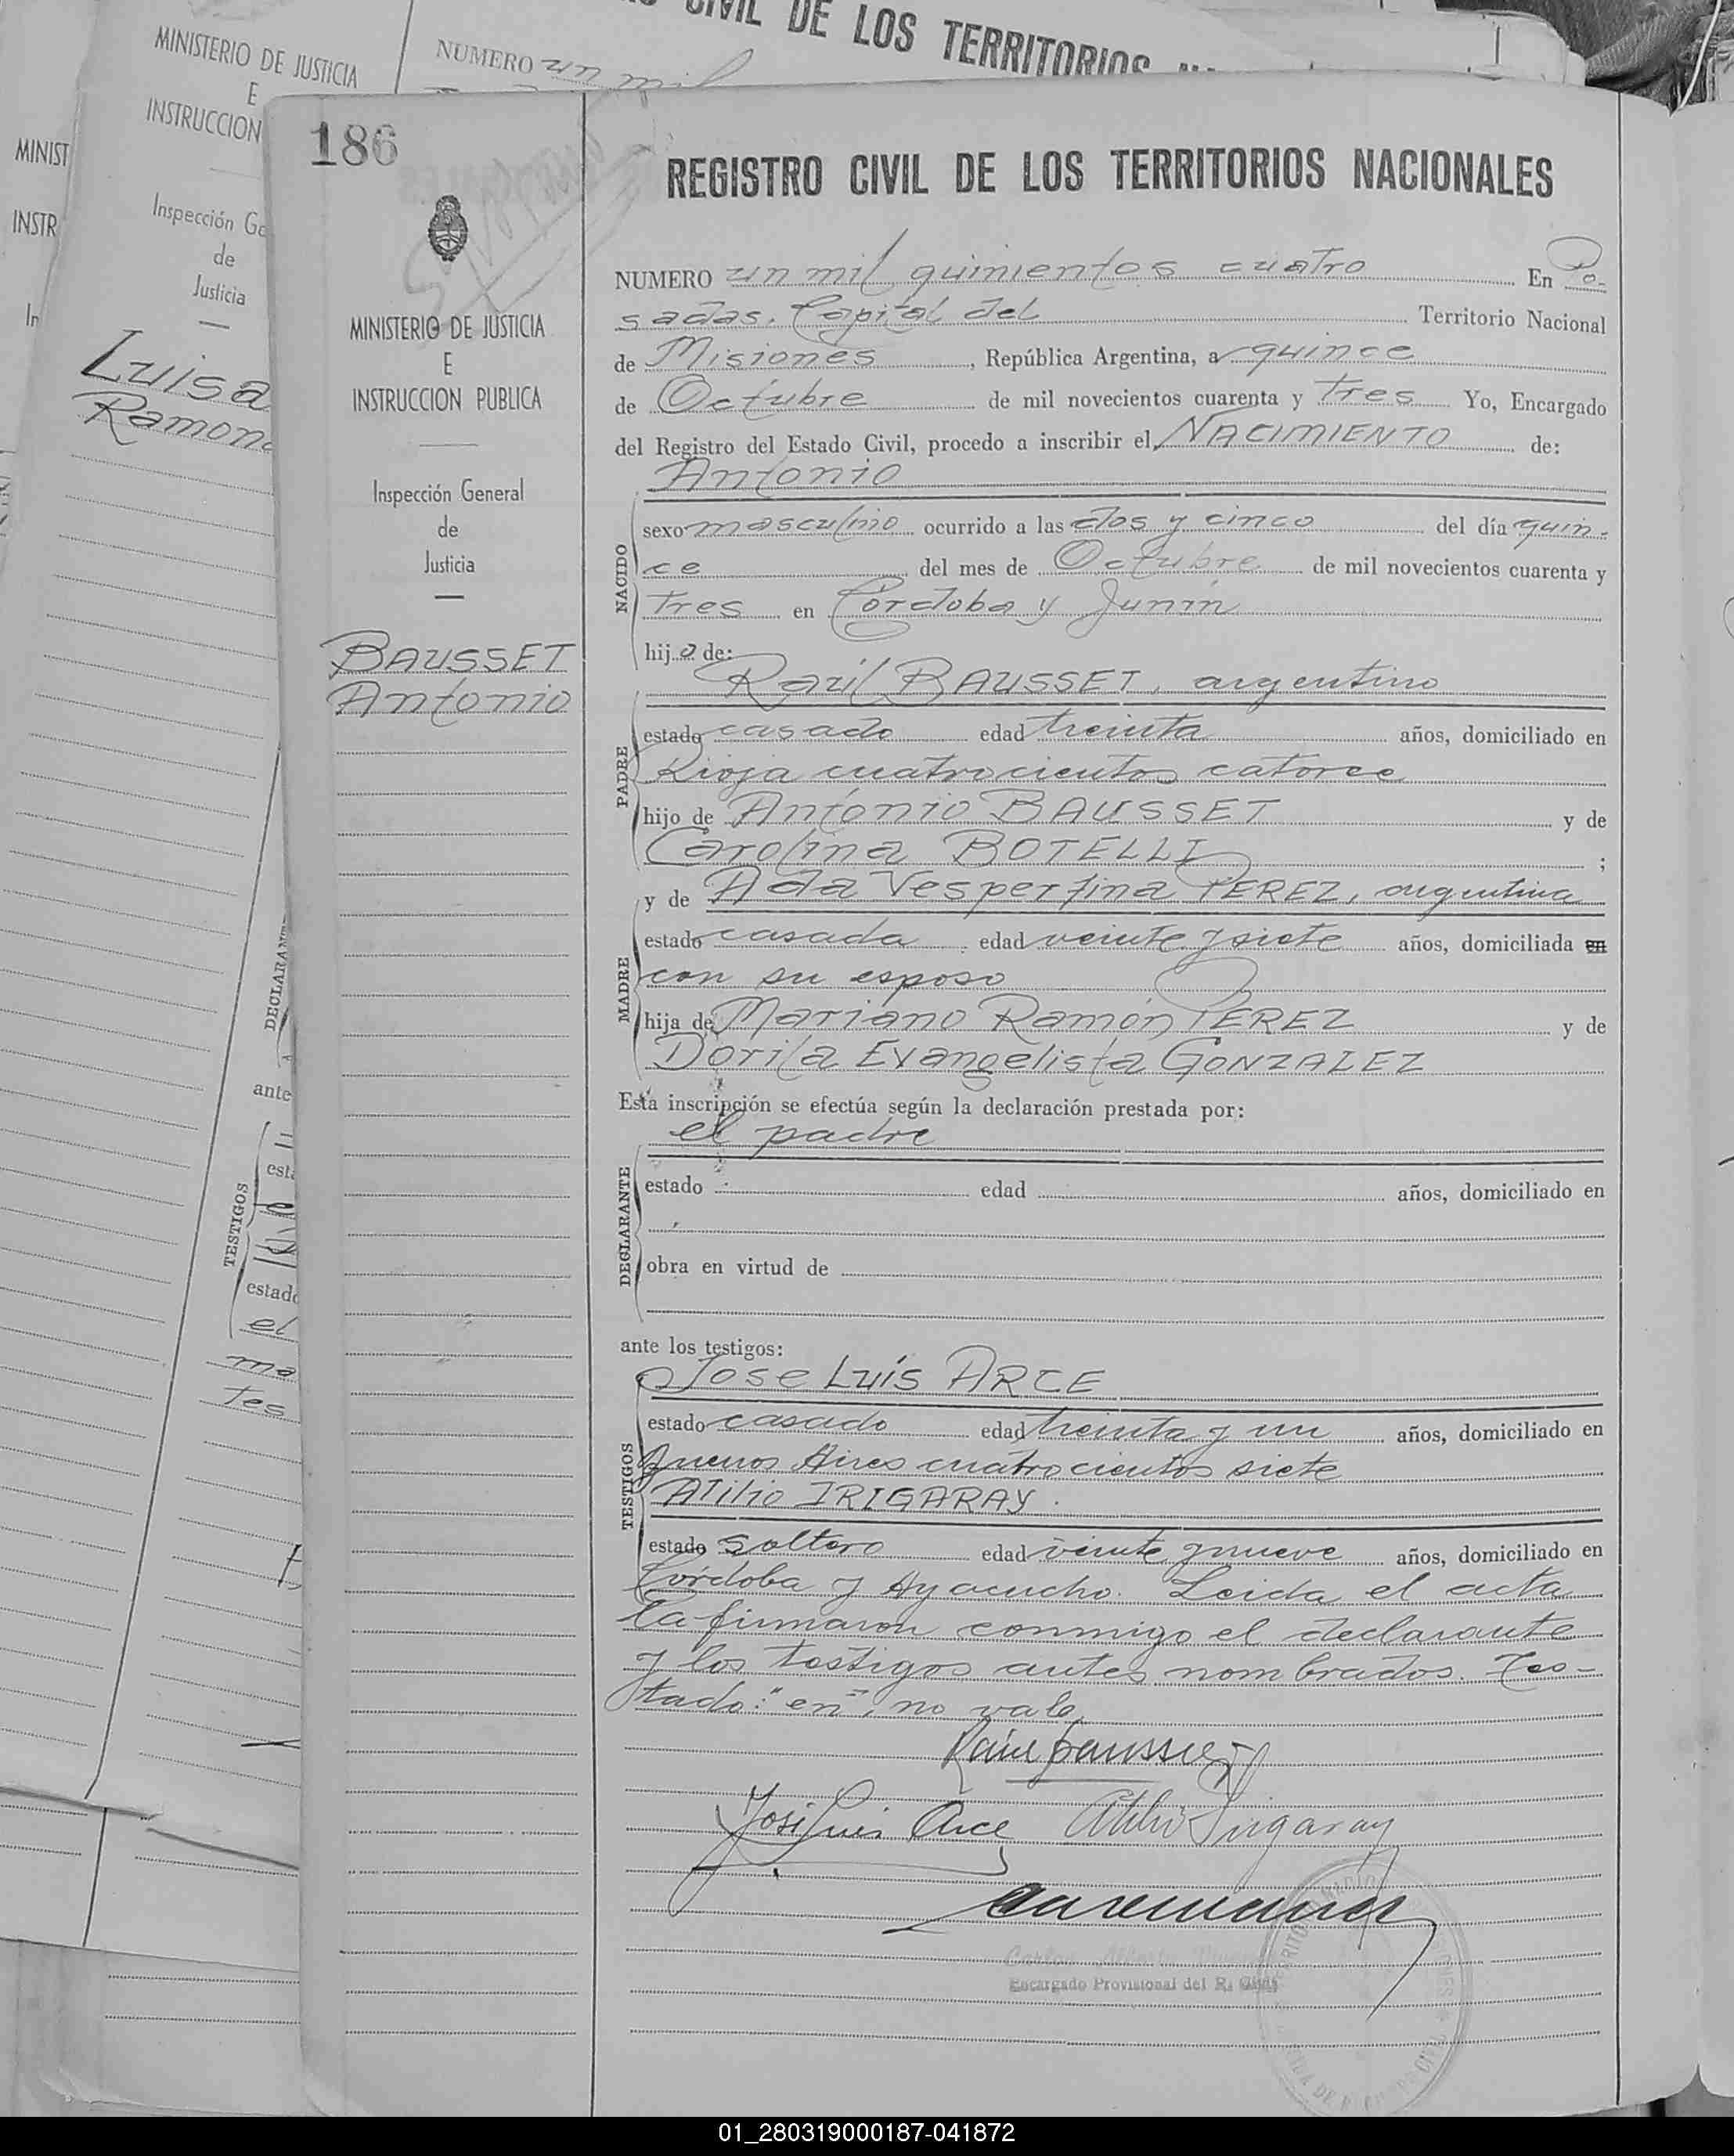 CIVIL DE LOS TERRITORIOS
MINISTERIO DE JUSTICIA
E
INSTRUCCION
NUMERO un mil
MINIST
INSTR
Inspección Ge
de
Justicia
In
Luisa
Ramona
DECLARANT
ante
TESTIGOS
esta
estado
el
ma
tes
186
MINISTERIO DE JUSTICIA
E
INSTRUCCION PUBLICA
Inspección General
de
Justicia
BAUSSET
Antonio
REGISTRO CIVIL DE LOS TERRITORIOS NACIONALES
NUMERO un mil quinientos cuatro En Po-
sadas. Capital del Territorio Nacional
de Misiones, República Argentina, a quince
de Octubre de mil novecientos cuarenta y tres Yo, Encargado
del Registro del Estado Civil, procedo a inscribir el NACIMIENTO de:
Antonio
NACIDO
sexo masculino ocurrido a las dos y cinco del día quin-
ce del mes de Octubre de mil novecientos cuarenta y
tres en Córdoba y Junín
hijo de:
Raúl BAUSSET, argentino
PADRE
estado casado edad treinta años, domiciliado en
Rioja cuatrocientos catorce
hijo de Antonio BAUSSET y de
Carolina BOTELLI ;
y de Ada Vespertina PEREZ, argentina
MADRE
estado casada edad veinte y siete años, domiciliada en
con su esposo
hija de Mariano Ramón PEREZ y de
Dorila Evangelista GONZALEZ
Esta inscripción se efectúa según la declaración prestada por:
el padre
DECLARANTE
estado edad años, domiciliado en
obra en virtud de
ante los testigos:
Jose Luís ARCE
TESTIGOS
estado casado edad treinta y un años, domiciliado en
Buenos Aires cuatrocientos siete
Atilio IRIGARAY.
estado soltero edad veinte y nueve años, domiciliado en
Córdoba y Ayacucho. Leida el acta
la firmaron conmigo el declarante
y los testigos antes nombrados. Tes-
tado: "en", no vale
Raúl Bausset
José Luis Arce Atilio Irigaray
Carlos Alberto
Encargado Provisional del R. Civil
01_280319000187-041872